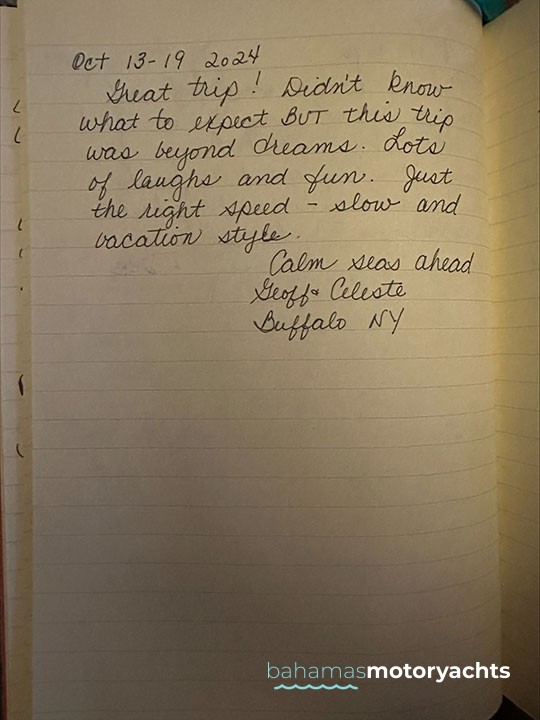 Oct 13-19 2024
Great trip! Didn't know
what to expect BUT this trip
was beyond dreams. Lots
of laughs and fun. Just
the right speed - slow and
vacation style.
Calm seas ahead
Geoff & Celeste
Buffalo NY
bahamasmotoryachts